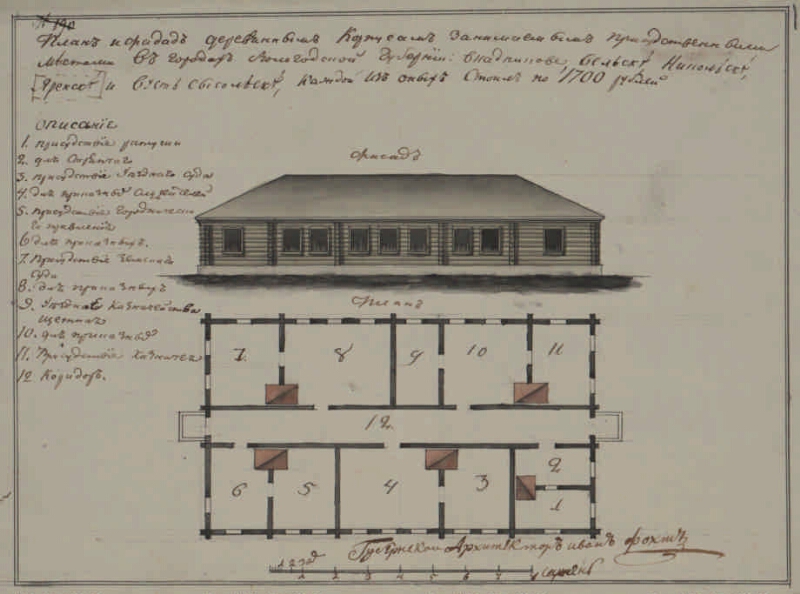 № 190
Планъ и фасадъ деревяннымъ Корпусамъ занимаемымъ присудственными
местами Въ городахъ Вологодской Губернiи: Кадникове, Вельске, Никольске,
Яренске и Усть Сысольске, каждой изъ оныхъ Стоилъ по 1700 рублей
описанiе
1. присудствiе
2. для
3. присудствiе Уезднаго Суда
4. для приказныхъ Служителей
5. присудствiе Городническаго
правленiя
6 для приказныхъ.
7. Присудствiе Земскаго
Суда
8. для приказныхъ
9. Уезднаго Казначейства
10. для приказныхъ
11. Присудствiе Казначея
12 Коридоръ.
Фасадъ
Планъ
7. 8 9 10 11
12.
6 5 4 3 2
1
Губернской Архитекторъ иванъ
1 2 3 4 5 6 7 8 саженъ